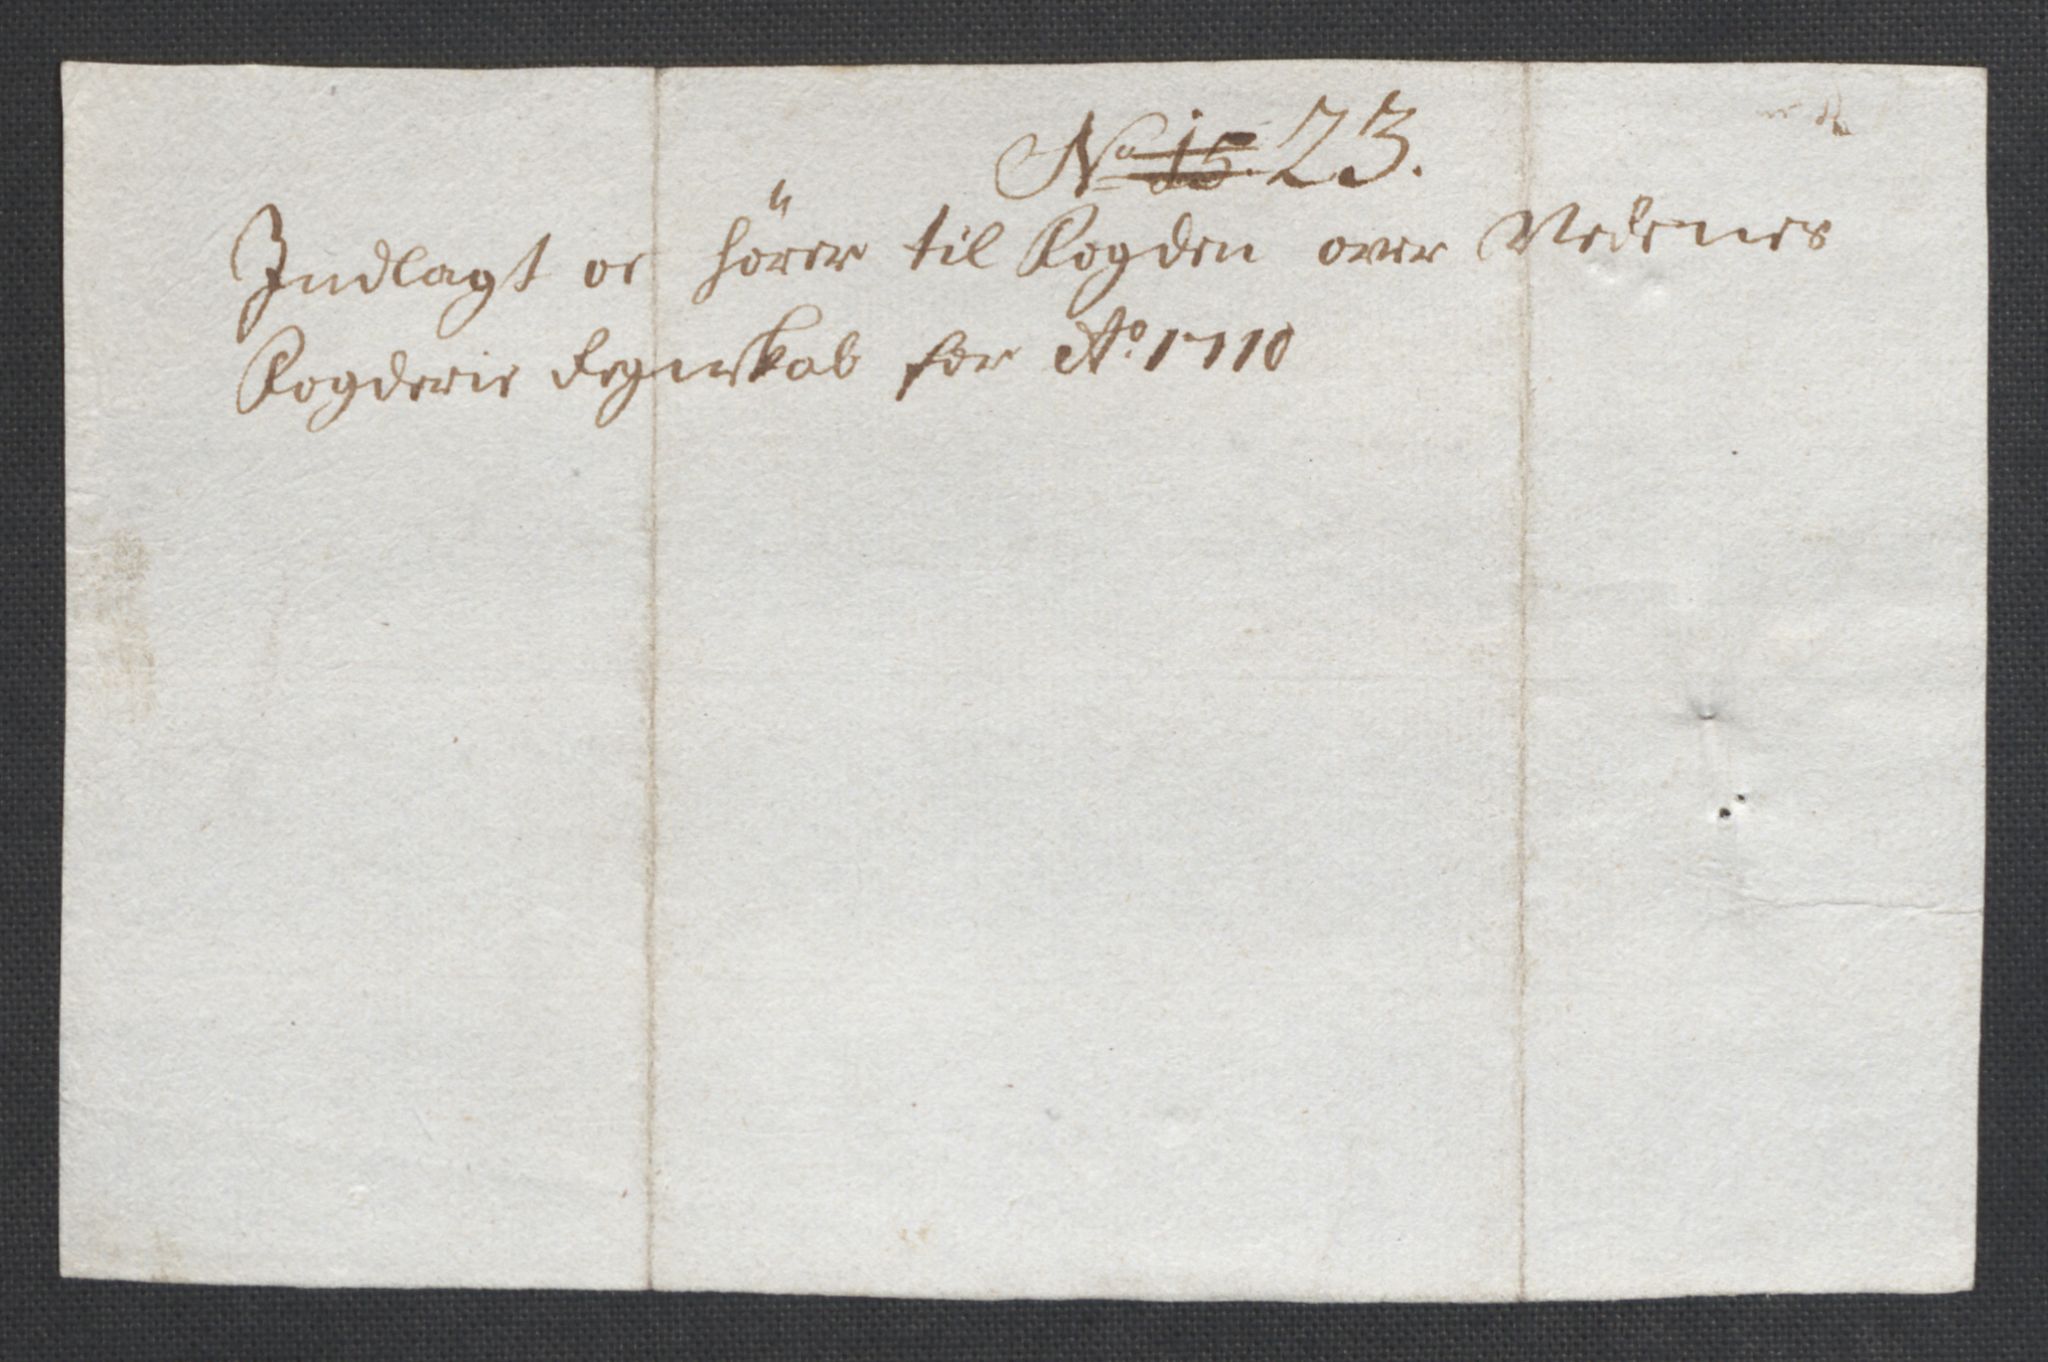 No 15. 23.
Indlagt oc hörer til Fogden over Nedenes
Fogderie Regenskab for Ao. 1710